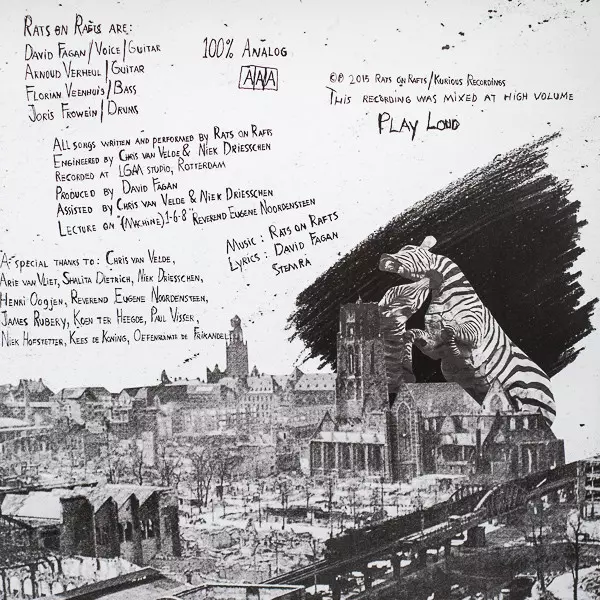 RATS ON RAFTS ARE:
DAVID FAGAN/VOICE/GUITAR
ARNOUD VERHEUL/GUITAR
FLORIAN VEENHUIS/BASS
JORIS FROWEIN/DRUMS
100% ANALOG
AAA
©℗ 2015 RATS ON RAFTS/KURIOUS RECORDINGS
THIS RECORDING WAS MIXED AT HIGH VOLUME
PLAY LOUD
ALL SONGS WRITTEN AND PERFORMED BY RATS ON RAFTS
ENGINEERED BY CHRIS VAN VELDE & NIEK DRIESSCHEN
RECORDED AT LGM STUDIO, ROTTERDAM
PRODUCED BY DAVID FAGAN
ASSISTED BY CHRIS VAN VELDE & NIEK DRIESSCHEN
LECTURE ON "(MACHINE) 1-6-8" REVEREND EUGENE NOORDENSTEEN
MUSIC: RATS ON RAFTS
LYRICS: DAVID FAGAN
STEMRA
A SPECIAL THANKS TO: CHRIS VAN VELDE,
ARIE VAN VLIET, SHALITA DIETRICH, NIEK DRIESSCHEN,
HENRI OOGJEN, REVEREND EUGENE NOORDENSTEEN,
JAMES RUBERY, KOEN TER HEEGDE, PAUL VISSER,
NIEK HOFSTETTER, KEES DE KONING, OEFENRUIMTE DE FRIKANDEL